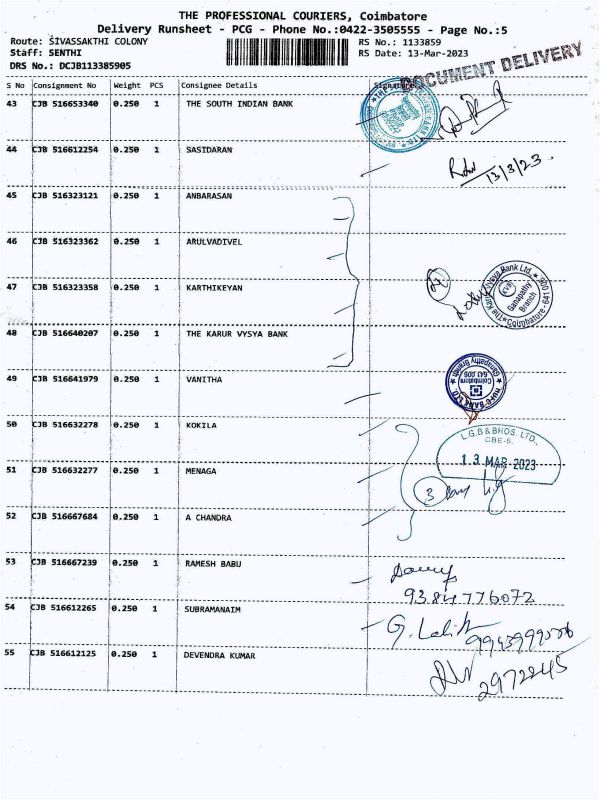 THE PROFESSIONAL COURIERS, Coimbatore
Delivery Runsheet - PCG - Phone No.:0422-3505555 - Page No.:5
Route: SIVASSAKTHI COLONY
RS No.: 1133859
Staff: SENTHI
RS Date: 13-Mar-2023
DRS No.: DCJB113385905
DOCUMENT DELIVERY
S No Consignment No Weight PCS Consignee Details Signature
43 CJB 516653340 0.250 1 THE SOUTH INDIAN BANK
44 CJB 516612254 0.250 1 SASIDARAN
13/3/23
45 CJB 516323121 0.250 1 ANBARASAN
46 CJB 516323362 0.250 1 ARULVADIVEL
47 CJB 516323358 0.250 1 KARTHIKEYAN
The Karur Vysya Bank Ltd.
KVB
Ganapathy
Branch
Coimbatore - 641 006
48 CJB 516640207 0.250 1 THE KARUR VYSYA BANK
49 CJB 516641979 0.250 1 VANITHA
Ganapathy Branch
Coimbatore
641 006
50 CJB 516632278 0.250 1 KOKILA
L.G.B & BROS. LTD.,
CBE-6.
13 MAR 2023
51 CJB 516632277 0.250 1 MENAGA
3
52 CJB 516667684 0.250 1 A CHANDRA
53 CJB 516667239 0.250 1 RAMESH BABU
9384776072
54 CJB 516612265 0.250 1 SUBRAMANAIM
G. Lalith
55 CJB 516612125 0.250 1 DEVENDRA KUMAR
2972245